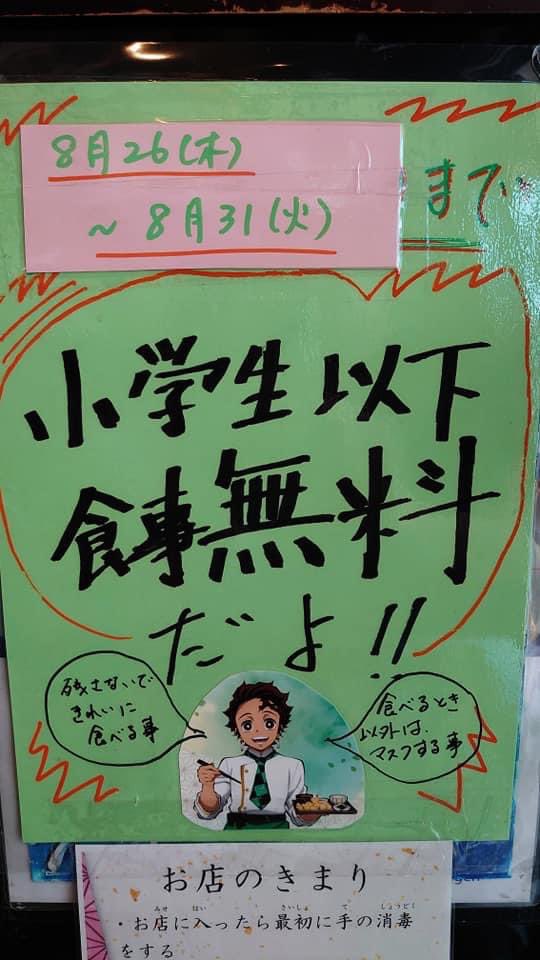 8月26(木)
~8月31(火)
まで
小学生以下
食事無料
だよ!!
残さないで
きれいに
食べる事
食べるとき
以外は、
マスクする事
お店のきまり
・お店に入ったら最初に手の消毒
をする